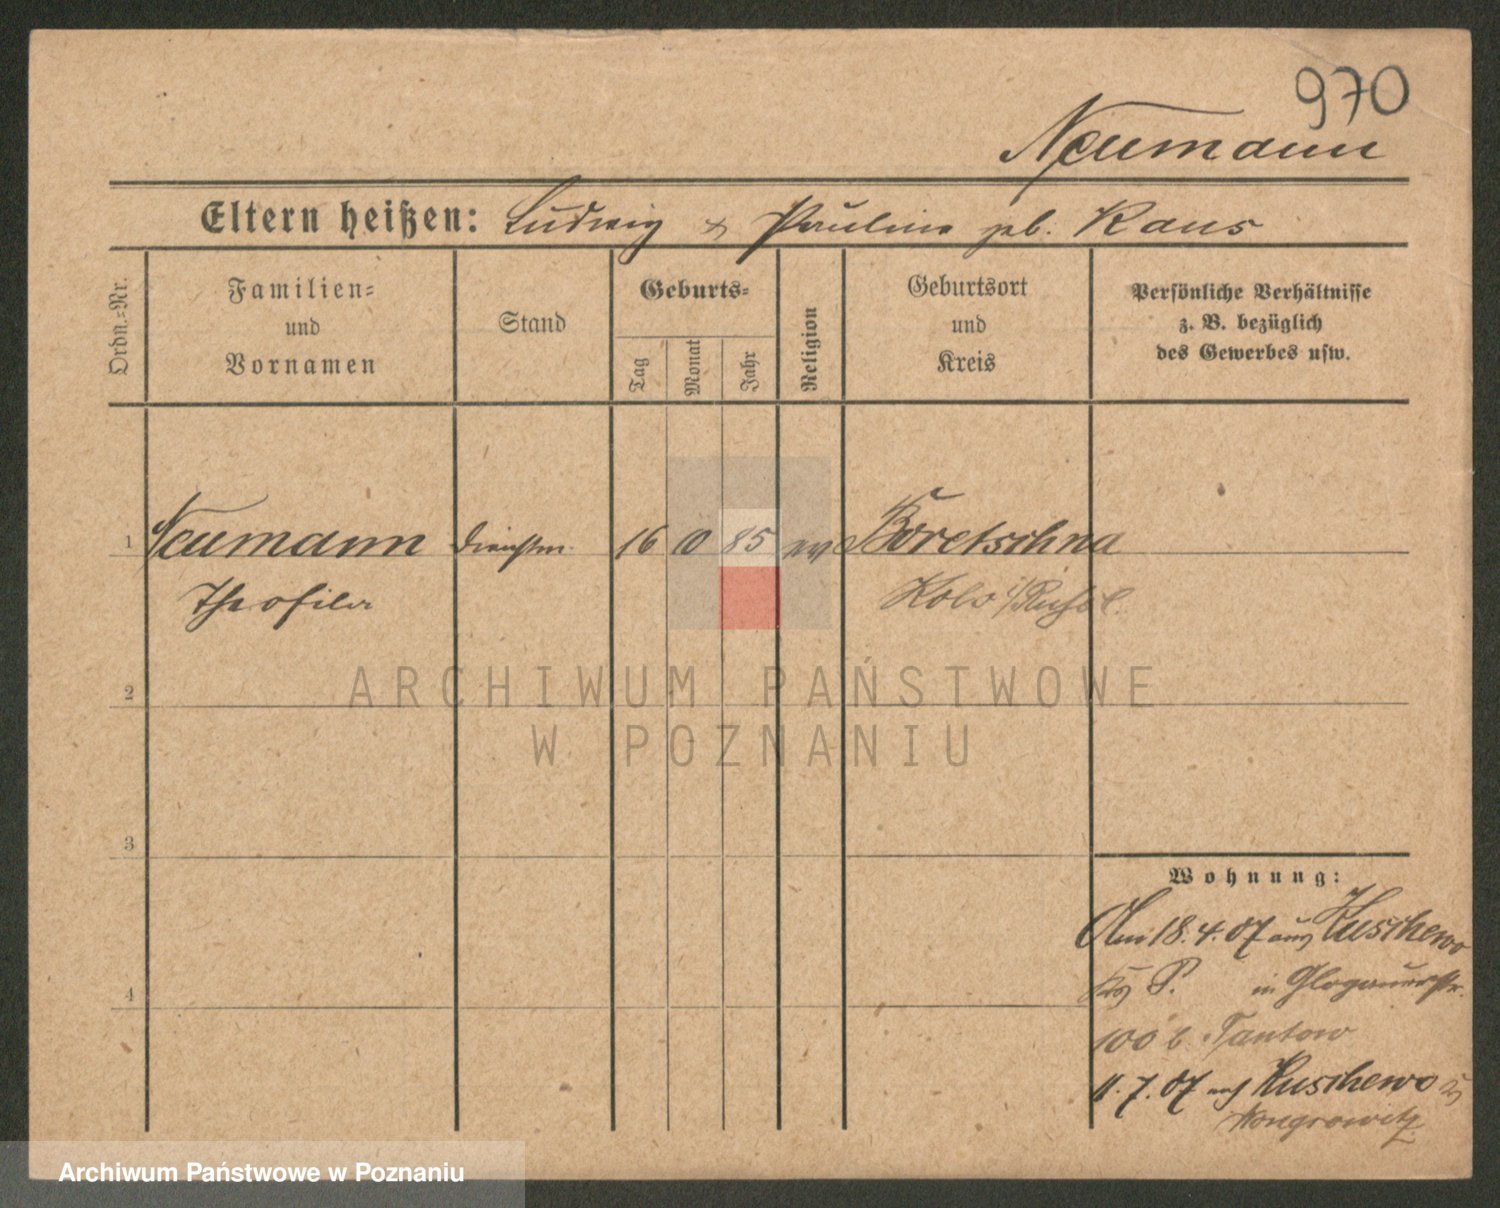 970
Neumann
Eltern heißen: Ludwig & Pauline geb. Kaus
Ordn.-Nr.
Familien-
und
Vornamen
Stand
Geburts-
Tag
Monat
Jahr
Religion
Geburtsort
und
Kreis
Persönliche Verhältnisse
z. B. bezüglich
des Gewerbes usw.
1 Neumann Dienstm. 16 10 85 ev Boretschna
Theofila Kolo i/Russl.
2
ARCHIWUM PAŃSTWOWE
W POZNANIU
3
Wohnung:
Am 18.4.07 aus Kuschewo
P. in Glogauerstr.
4
100 b. Tantow
11.7.07 nach Kuschewo
Wongrowitz
Archiwum Państwowe w Poznaniu